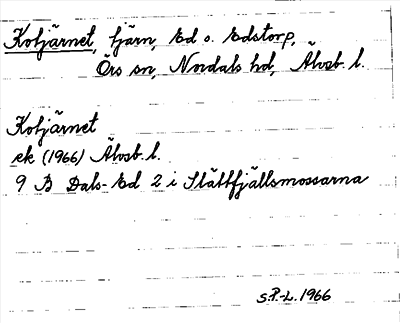 Kotjärnet, tjärn, Ed o. Edstorp,
Örs sn, Nordals hd, Älvsb. l.
Kotjärnet
ek (1966) Älvsb. l.
9 B Dals-Ed 2 i Slättfjällsmossarna
S.P.-L. 1966